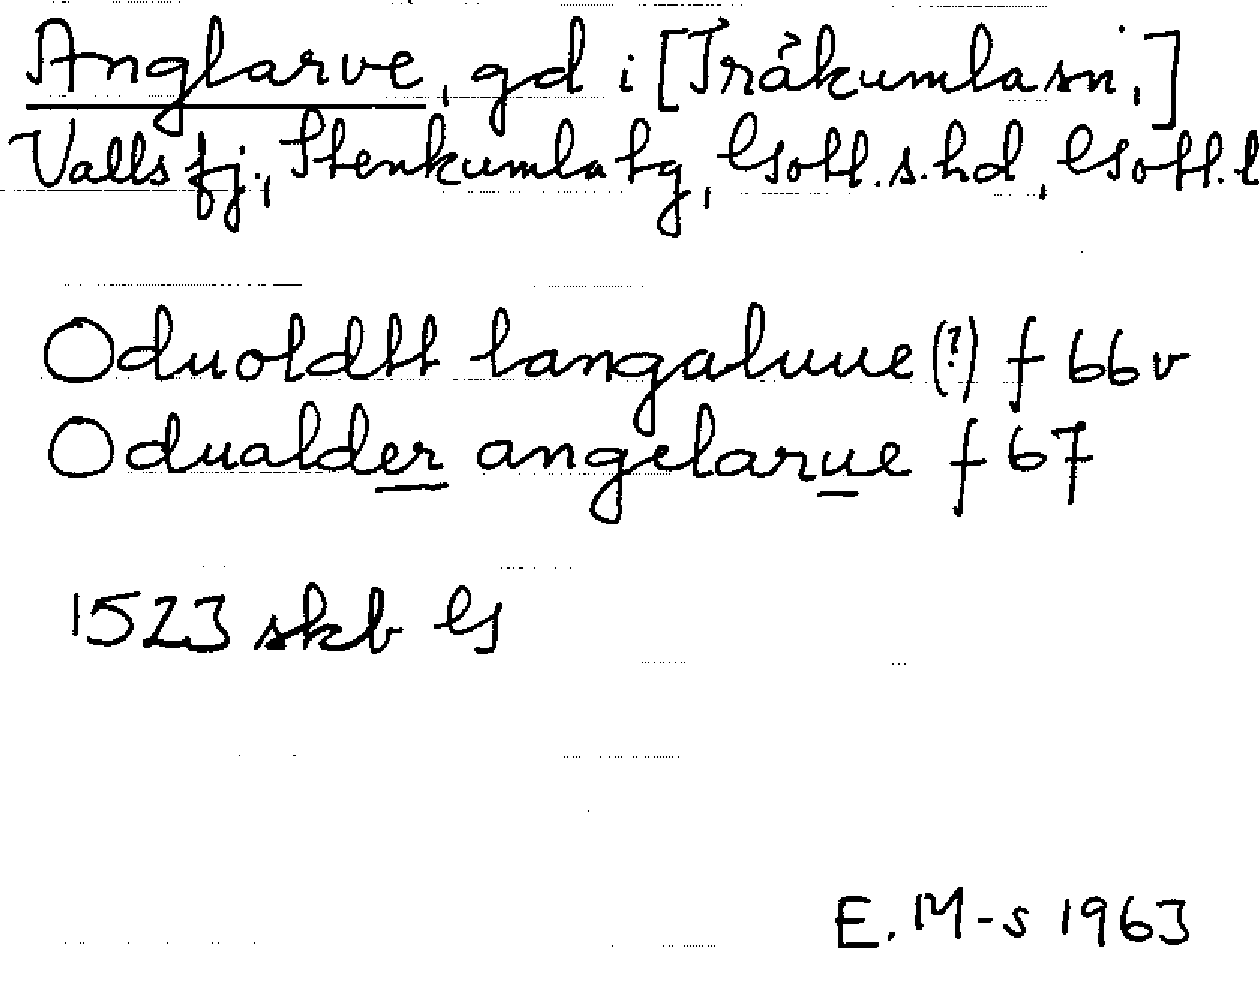 Anglarve, gd i [Träkumla sn,]
Valls fj., Stenkumla tg, Gotl. s. hd, Gotl. l
Oduoldtt langaluue (?) f 66 v
Odualder angelarue f 67
1523 skb G
E. M-s 1963